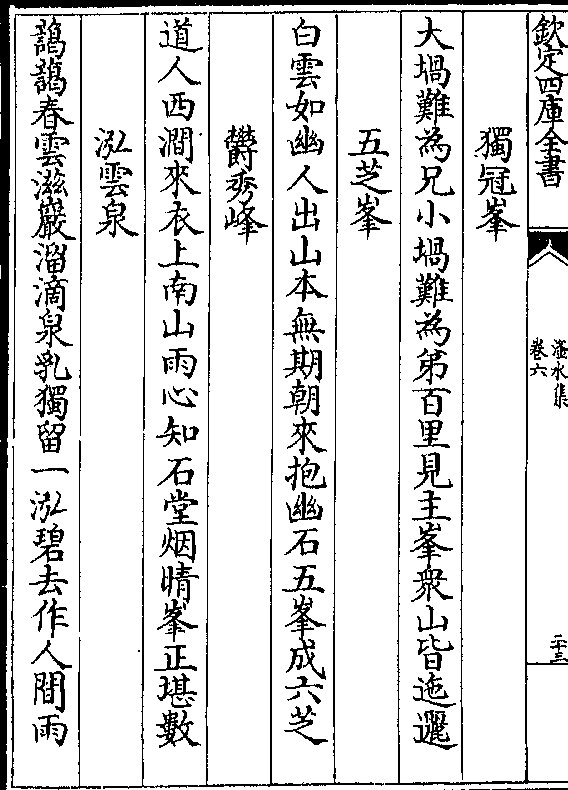 欽定四庫全書
滏水集
卷六
二十三
獨冠峯
大堝難為兄小堝難為弟百里見主峯衆山皆迤邐
五芝峯
白雲如幽人出山本無期朝來抱幽石五峯成六芝
欝秀峰
道人西澗來衣上南山雨心知石堂烟晴峯正堪數
泓雲泉
藹藹春雲滋巖溜滴泉乳獨留一泓碧去作人間雨